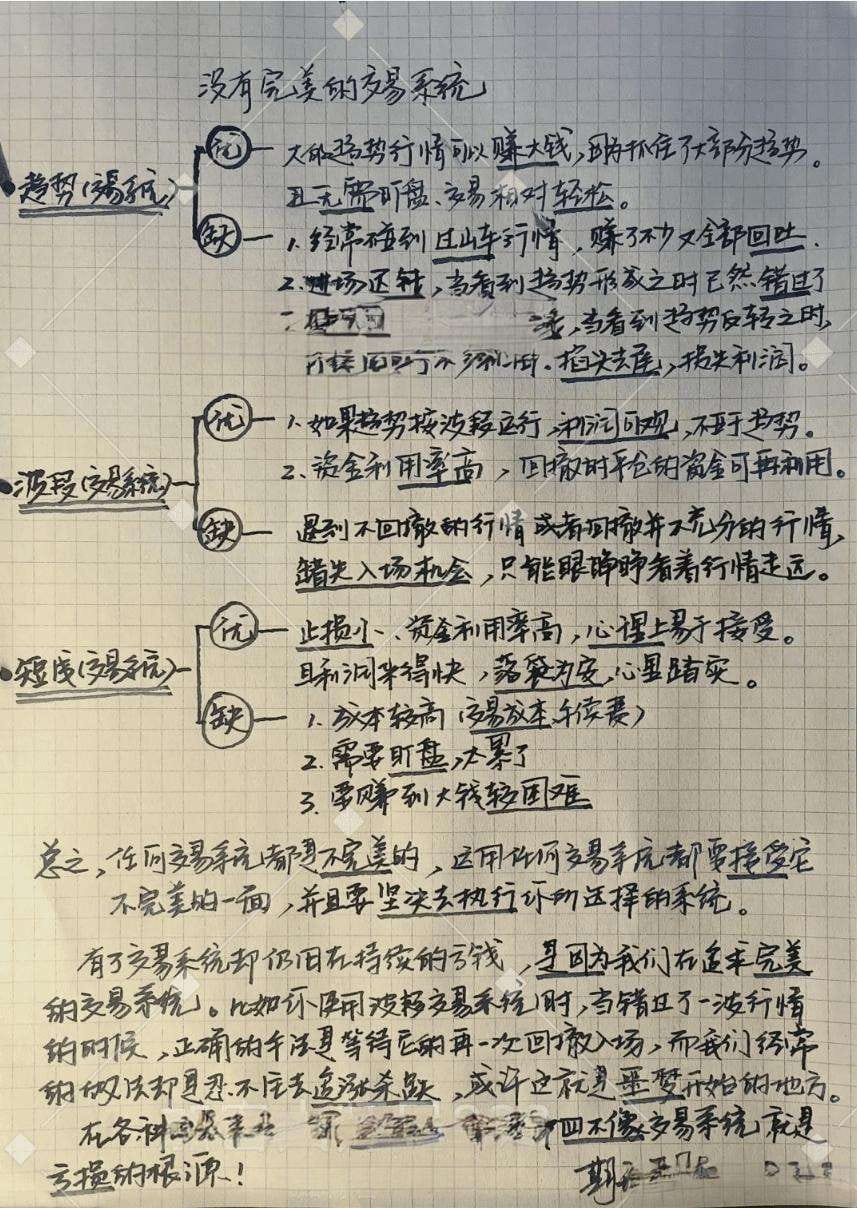 没有完美的交易系统
趋势(交易系统)
优 大的趋势行情可以赚大钱,因为抓住了大部分趋势。
且无需盯盘、交易相对轻松。
缺 1.经常碰到过山车行情,赚了不少又全部回吐.
2.进场迟钝,当看到趋势形成之时已然错过了
,当看到趋势反转之时,
掐头去尾,损失利润。
波段(交易系统)
优 1.如果趋势按波段运行,利润可观,不亚于趋势。
2.资金利用率高,回撤时平仓的资金可再利用。
缺 遇到不回撤的行情或者回撤并不充分的行情,
错失入场机会,只能眼睁睁看着行情走远。
短线(交易系统)
优 止损小、资金利用率高,心理上易于接受。
且利润来得快,落袋为安,心里踏实。
缺 1.成本较高(交易成本、手续费)
2.需要盯盘,太累了
3.要赚到大钱较困难
总之,任何交易系统都是不完美的,运用任何交易系统都要接受它
不完美的一面,并且要坚决去执行你所选择的系统。
有了交易系统却仍旧在持续的亏钱,是因为我们在追求完美
的交易系统。比如你使用波段交易系统时,当错过了一波行情
的时候,正确的手法是等待它的再一次回撤入场,而我们经常
的做法却是忍不住去追涨杀跌,或许这就是噩梦开始的地方。
在各种 四不像交易系统就是
亏损的根源!